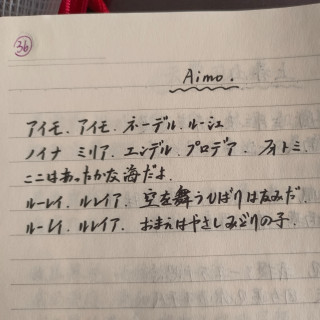 36
Aimo.
アイモ.アイモ.ネーデル.ルーシェ
ノイナ ミリア.エンデル.プロデア.フォトミ.
ここはあったかな海だよ.
ルーレイ.ルレイア.空を舞うひばりはなみだ.
ルーレイ.ルレイア.おまえはやさしみどりの子.